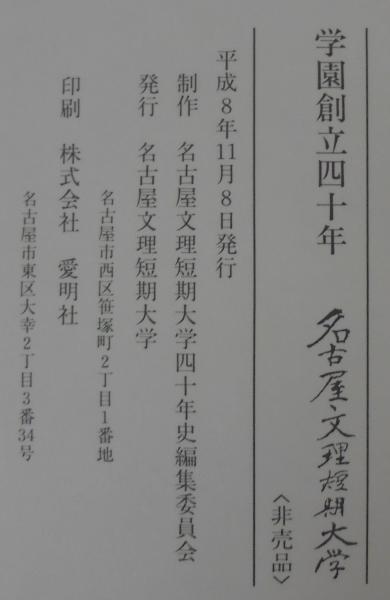 学園創立四十年　名古屋文理短期大学
〈非売品〉
平成8年11月8日発行
制作　名古屋文理短期大学四十年史編集委員会
発行　名古屋文理短期大学
名古屋市西区笹塚町2丁目1番地
印刷　株式会社　愛明社
名古屋市東区大幸2丁目3番34号